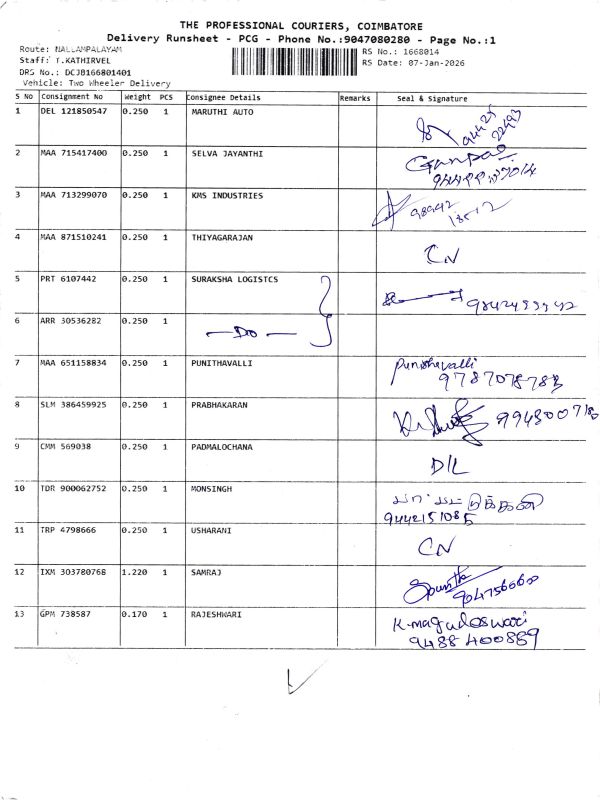 THE PROFESSIONAL COURIERS, COIMBATORE
Delivery Runsheet - PCG - Phone No.:9047080280 - Page No.:1
Route: NALLAMPALAYAM
Staff: T.KATHIRVEL
DRS No.: DCJB166801401
Vehicle: Two Wheeler Delivery
RS No.: 1668014
RS Date: 07-Jan-2026
S No Consignment No Weight PCS Consignee Details Remarks Seal & Signature
1 DEL 121850547 0.250 1 MARUTHI AUTO 94425 22493
2 MAA 715417400 0.250 1 SELVA JAYANTHI
3 MAA 713299070 0.250 1 KMS INDUSTRIES 98942
4 MAA 871510241 0.250 1 THIYAGARAJAN CN
5 PRT 6107442 0.250 1 SURAKSHA LOGISTCS
6 ARR 30536282 0.250 1 —Do—
7 MAA 651158834 0.250 1 PUNITHAVALLI Punithavalli
9787078783
8 SLM 386459925 0.250 1 PRABHAKARAN
9 CMM 569038 0.250 1 PADMALOCHANA D/L
10 TDR 900062752 0.250 1 MONSINGH
9442151085
11 TRP 4798666 0.250 1 USHARANI CN
12 IXM 303780768 1.220 1 SAMRAJ
13 GPM 738587 0.170 1 RAJESHWARI K.magudeswari
9488400889